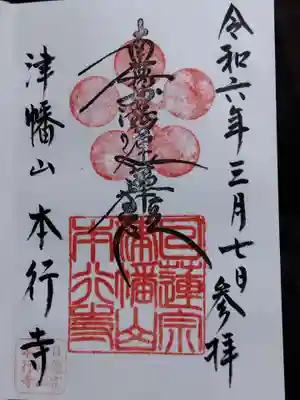 令和六年三月七日参拝
南無妙法蓮華経
津幡山 本行寺
日蓮宗
津幡山
本行寺